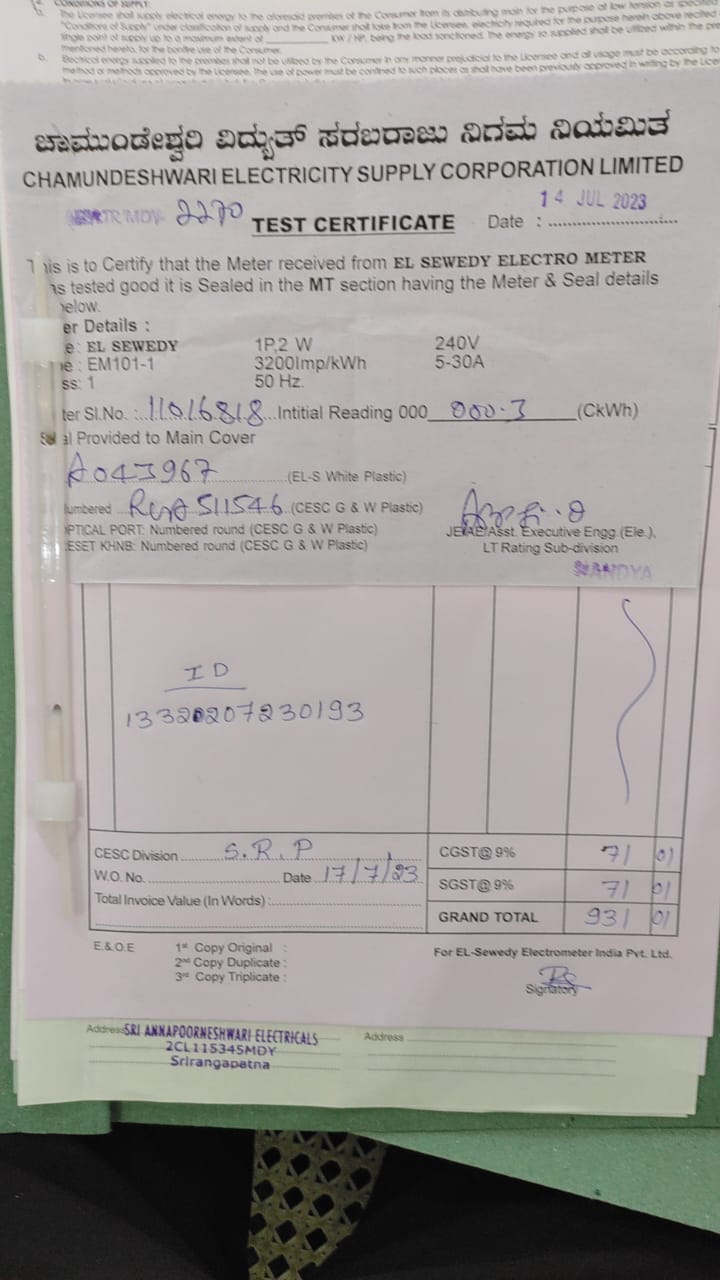 CONDITIONS OF SUPPLY:
a. The Licensee shall supply electrical energy to the aforesaid premises of the Consumer from its distributing main for the purpose at low tension as specified
"Conditions of Supply" under classification of supply and the Consumer shall take from the Licensee, electricity required for the purpose herein above recited
single point of supply up to a maximum extent of ____________ KW / HP, being the load sanctioned. The energy so supplied shall be utilized within the pre
mentioned hereto, for the bonfire use of the Consumer.
b. Electrical energy supplied to the premises shall not be utilized by the Consumer in any manner prejudicial to the Licensee and all usage must be according to
method or methods approved by the Licensee. The use of power must be confined to such places as shall have been previously approved in writing by the Licen
ಚಾಮುಂಡೇಶ್ವರಿ ವಿದ್ಯುತ್ ಸರಬರಾಜು ನಿಗಮ ನಿಯಮಿತ
CHAMUNDESHWARI ELECTRICITY SUPPLY CORPORATION LIMITED
TR/MDY 2270 TEST CERTIFICATE Date : 14 JUL 2023
This is to Certify that the Meter received from EL SEWEDY ELECTRO METER
as tested good it is Sealed in the MT section having the Meter & Seal details
below.
er Details :
e: EL SEWEDY 1P,2 W 240V
e : EM101-1 3200Imp/kWh 5-30A
ss: 1 50 Hz.
ter Sl.No. : 11016818 Intitial Reading 000 000.3 (CkWh)
Seal Provided to Main Cover
A043967 (EL-S White Plastic)
umbered 511546 (CESC G & W Plastic)
OPTICAL PORT: Numbered round (CESC G & W Plastic) JE/AE/Asst. Executive Engg.(Ele.),
RESET KHNB: Numbered round (CESC G & W Plastic) LT Rating Sub-division
MANDYA
ID
13320207230193
CESC Division S.R.P CGST@ 9% 71 01
W.O. No. Date 17/7/23 SGST@ 9% 71 01
Total Invoice Value (In Words) : GRAND TOTAL 931 01
E.& O.E 1st Copy Original : For EL-Sewedy Electrometer India Pvt. Ltd.
2nd Copy Duplicate :
3rd Copy Triplicate : Signatory
Address SRI ANNAPOORNESHWARI ELECTRICALS Address
2CL115345MDY
Srirangapatna